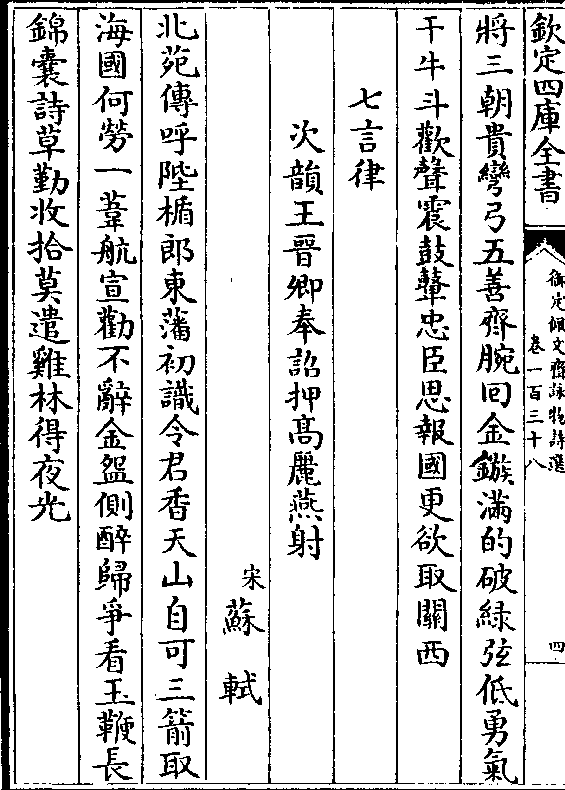 欽定四庫全書
御定佩文齋詠物詩選
卷一百三十八
四
將三朝貴彎弓五善齊腕回金鏃滿的破綠弦低勇氣
干牛斗歡聲震鼓鼙忠臣思報國更欲取關西
七言律
次韻王晉卿奉詔押髙麗燕射
宋蘇軾
北苑傳呼陛楯郎東藩初識令君香天山自可三箭取
海國何勞一葦航宣勸不辭金盌側醉歸爭看玉鞭長
錦囊詩草勤收拾莫遣雞林得夜光